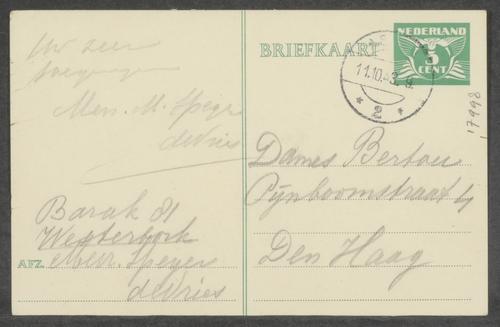 Uw zeer
toegenegen
Mevr. M. Speyer
de Vries
Barak 81
Westerbork
AFZ. Mevr. Speyer
de Vries
BRIEFKAART
NEDERLAND
5
CENT
11.10.43. 9.
2
17998
Dames Berton
Pijnboomstraat
Den Haag